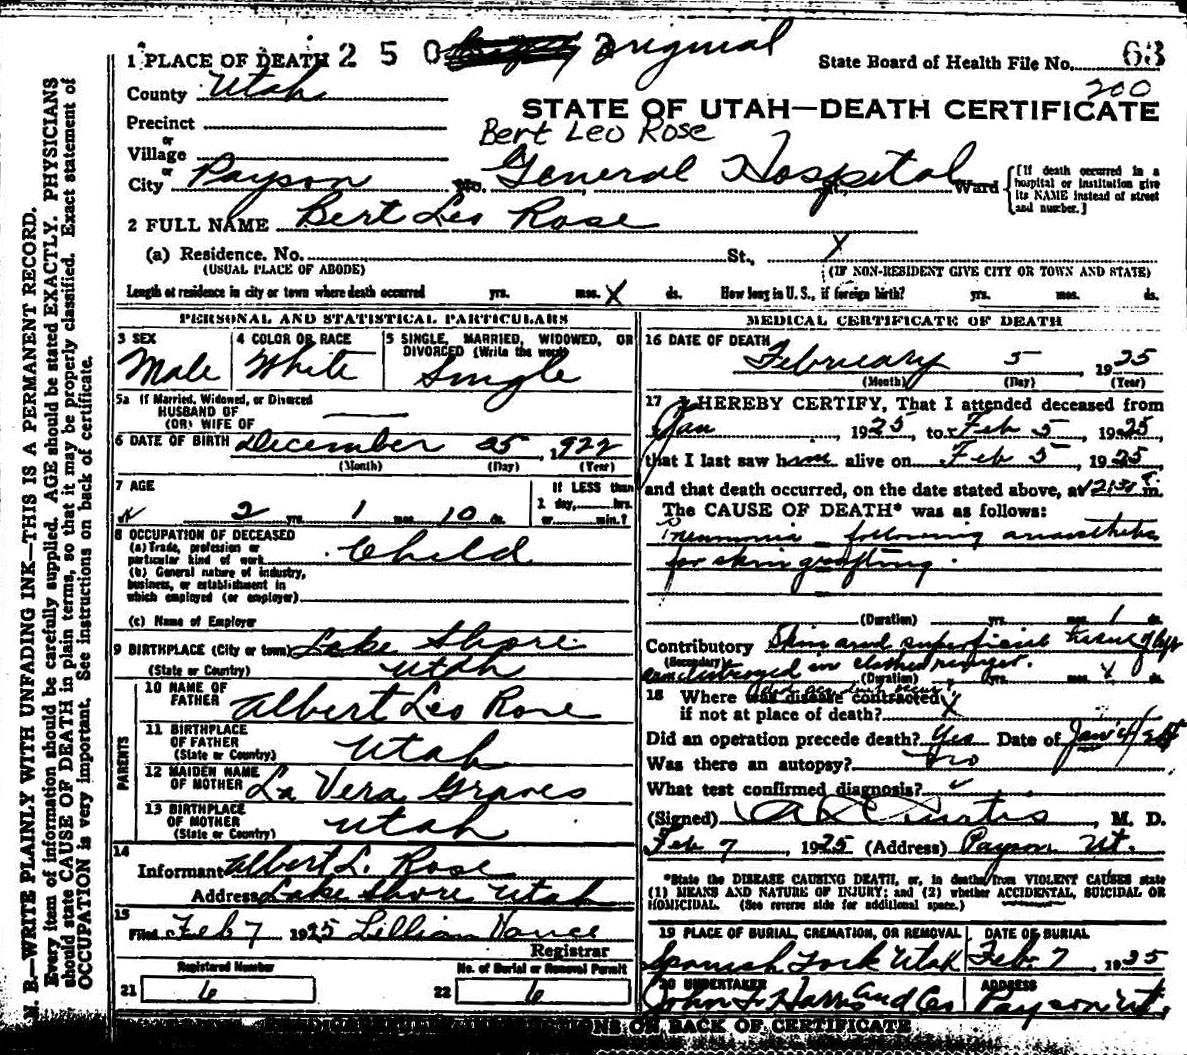 N. B.—WRITE PLAINLY WITH UNFADING INK—THIS IS A PERMANENT RECORD.
Every item of information should be carefully supplied. AGE should be stated EXACTLY. PHYSICIANS
should state CAUSE OF DEATH in plain terms, so that it may be properly classified. Exact statement of
OCCUPATION is very important. See instructions on back of certificate.
1 PLACE OF DEATH 2 5 0 Original
State Board of Health File No. 63
200
County Utah
STATE OF UTAH—DEATH CERTIFICATE
Precinct
Bert Leo Rose
or
Village
or
City Payson No. General Hospital Ward
[If death occurred in a
hospital or institution give
its NAME instead of street
and number.]
2 FULL NAME Bert Leo Rose
(a) Residence. No. St., X
(USUAL PLACE OF ABODE) (IF NON-RESIDENT GIVE CITY OR TOWN AND STATE)
Length of residence in city or town where death occurred yrs. mos. X ds. How long in U. S., if foreign birth? yrs. mos. ds.
PERSONAL AND STATISTICAL PARTICULARS
3 SEX
Male
4 COLOR OR RACE
White
5 SINGLE, MARRIED, WIDOWED, OR
DIVORCED (Write the word)
Single
5a If Married, Widowed, or Divorced
HUSBAND OF
(OR) WIFE OF
6 DATE OF BIRTH December 25, 1922
(Month) (Day) (Year)
7 AGE
2 yrs. 1 mos. 10 ds.
If LESS than
1 day, hrs.
or min.?
8 OCCUPATION OF DECEASED
(a) Trade, profession or
particular kind of work Child
(b) General nature of industry,
business, or establishment in
which employed (or employer)
(c) Name of Employer
9 BIRTHPLACE (City or town) Lake Shore
(State or Country) Utah
PARENTS
10 NAME OF
FATHER Albert Leo Rose
11 BIRTHPLACE
OF FATHER
(State or Country) Utah
12 MAIDEN NAME
OF MOTHER La Vera Graves
13 BIRTHPLACE
OF MOTHER
(State or Country) Utah
14
Informant Albert L. Rose
Address Lake Shore Utah
15
Filed Feb 7 1925 Lillian Vance
Registrar
Registered Number
21 6
No. of Burial or Removal Permit
22 6
MEDICAL CERTIFICATE OF DEATH
16 DATE OF DEATH
February 5 1925
(Month) (Day) (Year)
17 I HEREBY CERTIFY, That I attended deceased from
Jan , 1925, to Feb 5, 1925,
that I last saw him alive on Feb 5, 1925,
and that death occurred, on the date stated above, at m.
The CAUSE OF DEATH* was as follows:
Pneumonia following anaesthetic
for skin grafting.
(Duration) yrs. mos. 1 ds.
Contributory Skin and superficial tissue of
(Secondary) arm destroyed in clothes ringer.
(Duration) yrs. mos. X ds.
18 Where was disease contracted
if not at place of death? X
Did an operation precede death? Yes Date of Jan
Was there an autopsy? No
What test confirmed diagnosis?
(Signed) Curtis, M. D.
Feb 7, 1925 (Address) Payson Ut.
*State the DISEASE CAUSING DEATH, or, in deaths from VIOLENT CAUSES state
(1) MEANS AND NATURE OF INJURY; and (2) whether ACCIDENTAL, SUICIDAL OR
HOMICIDAL. (See reverse side for additional space.)
19 PLACE OF BURIAL, CREMATION, OR REMOVAL
Spanish Fork Utah
DATE OF BURIAL
Feb. 7 1925
20 UNDERTAKER
John and Co
ADDRESS
Payson Ut.
READ CAREFULLY INSTRUCTIONS ON BACK OF CERTIFICATE